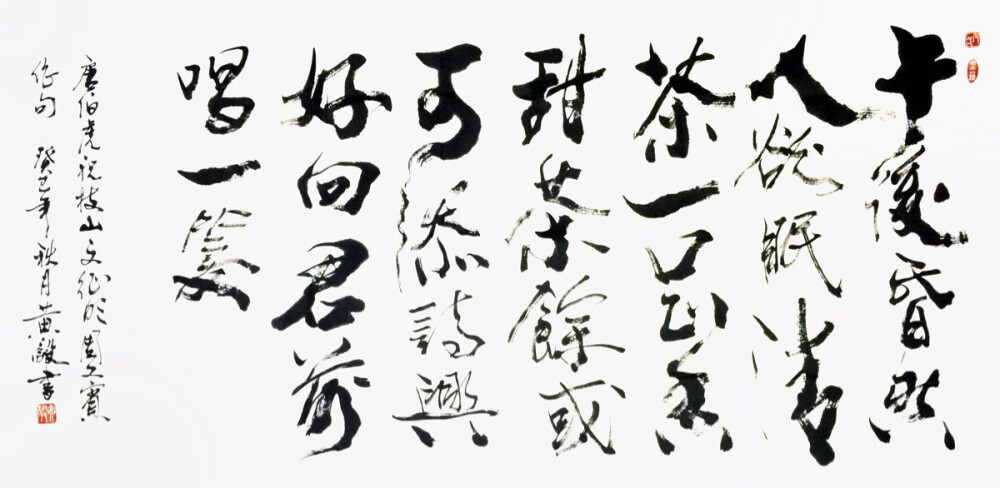 午後昏然
人欲眠清
茶一口正香
甜茶餘或
可添詩興
好向君前
唱一篇
唐伯虎祝枝山文征明周文賓
作句 癸巳年秋月黄毅書